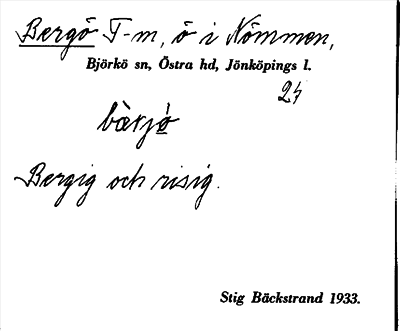 Bergö T-m, ö i Nömmen,
Björkö sn, Östra hd, Jönköpings l.
24
bàrjö̀
Bergig och risig.
Stig Bäckstrand 1933.